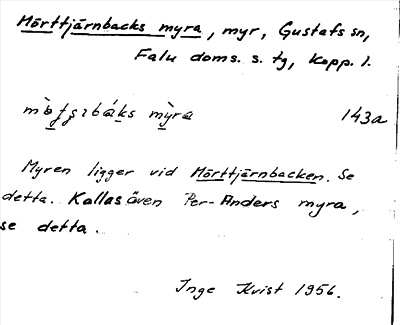 Mörttjärnbacks myra, myr, Gustafs sn,
Falu doms. s. tg, Kopp. l.
143a
Myren ligger vid Mörttjärnbacken. Se
detta. Kallas även Per-Anders myra,
se detta.
Inge Kvist 1956.